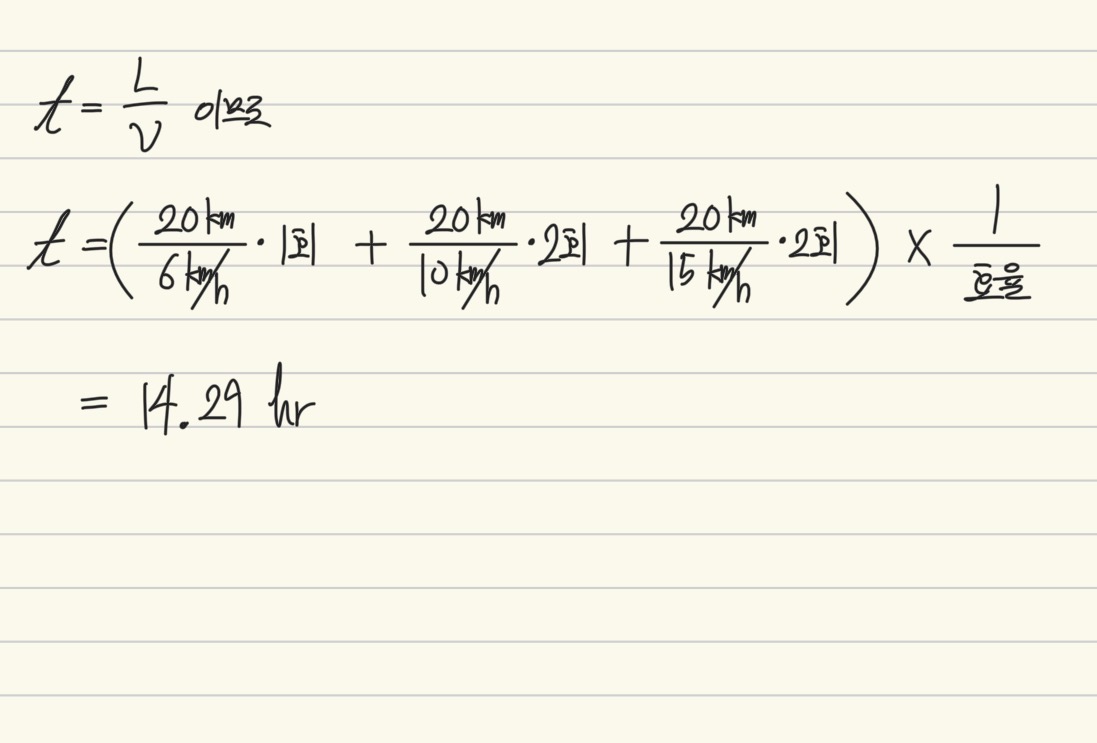 t = L/V 이므로
t = (20km/6km/h · 1회 + 20km/10km/h · 2회 + 20km/15km/h · 2회) × 1/효율
= 14.29 hr